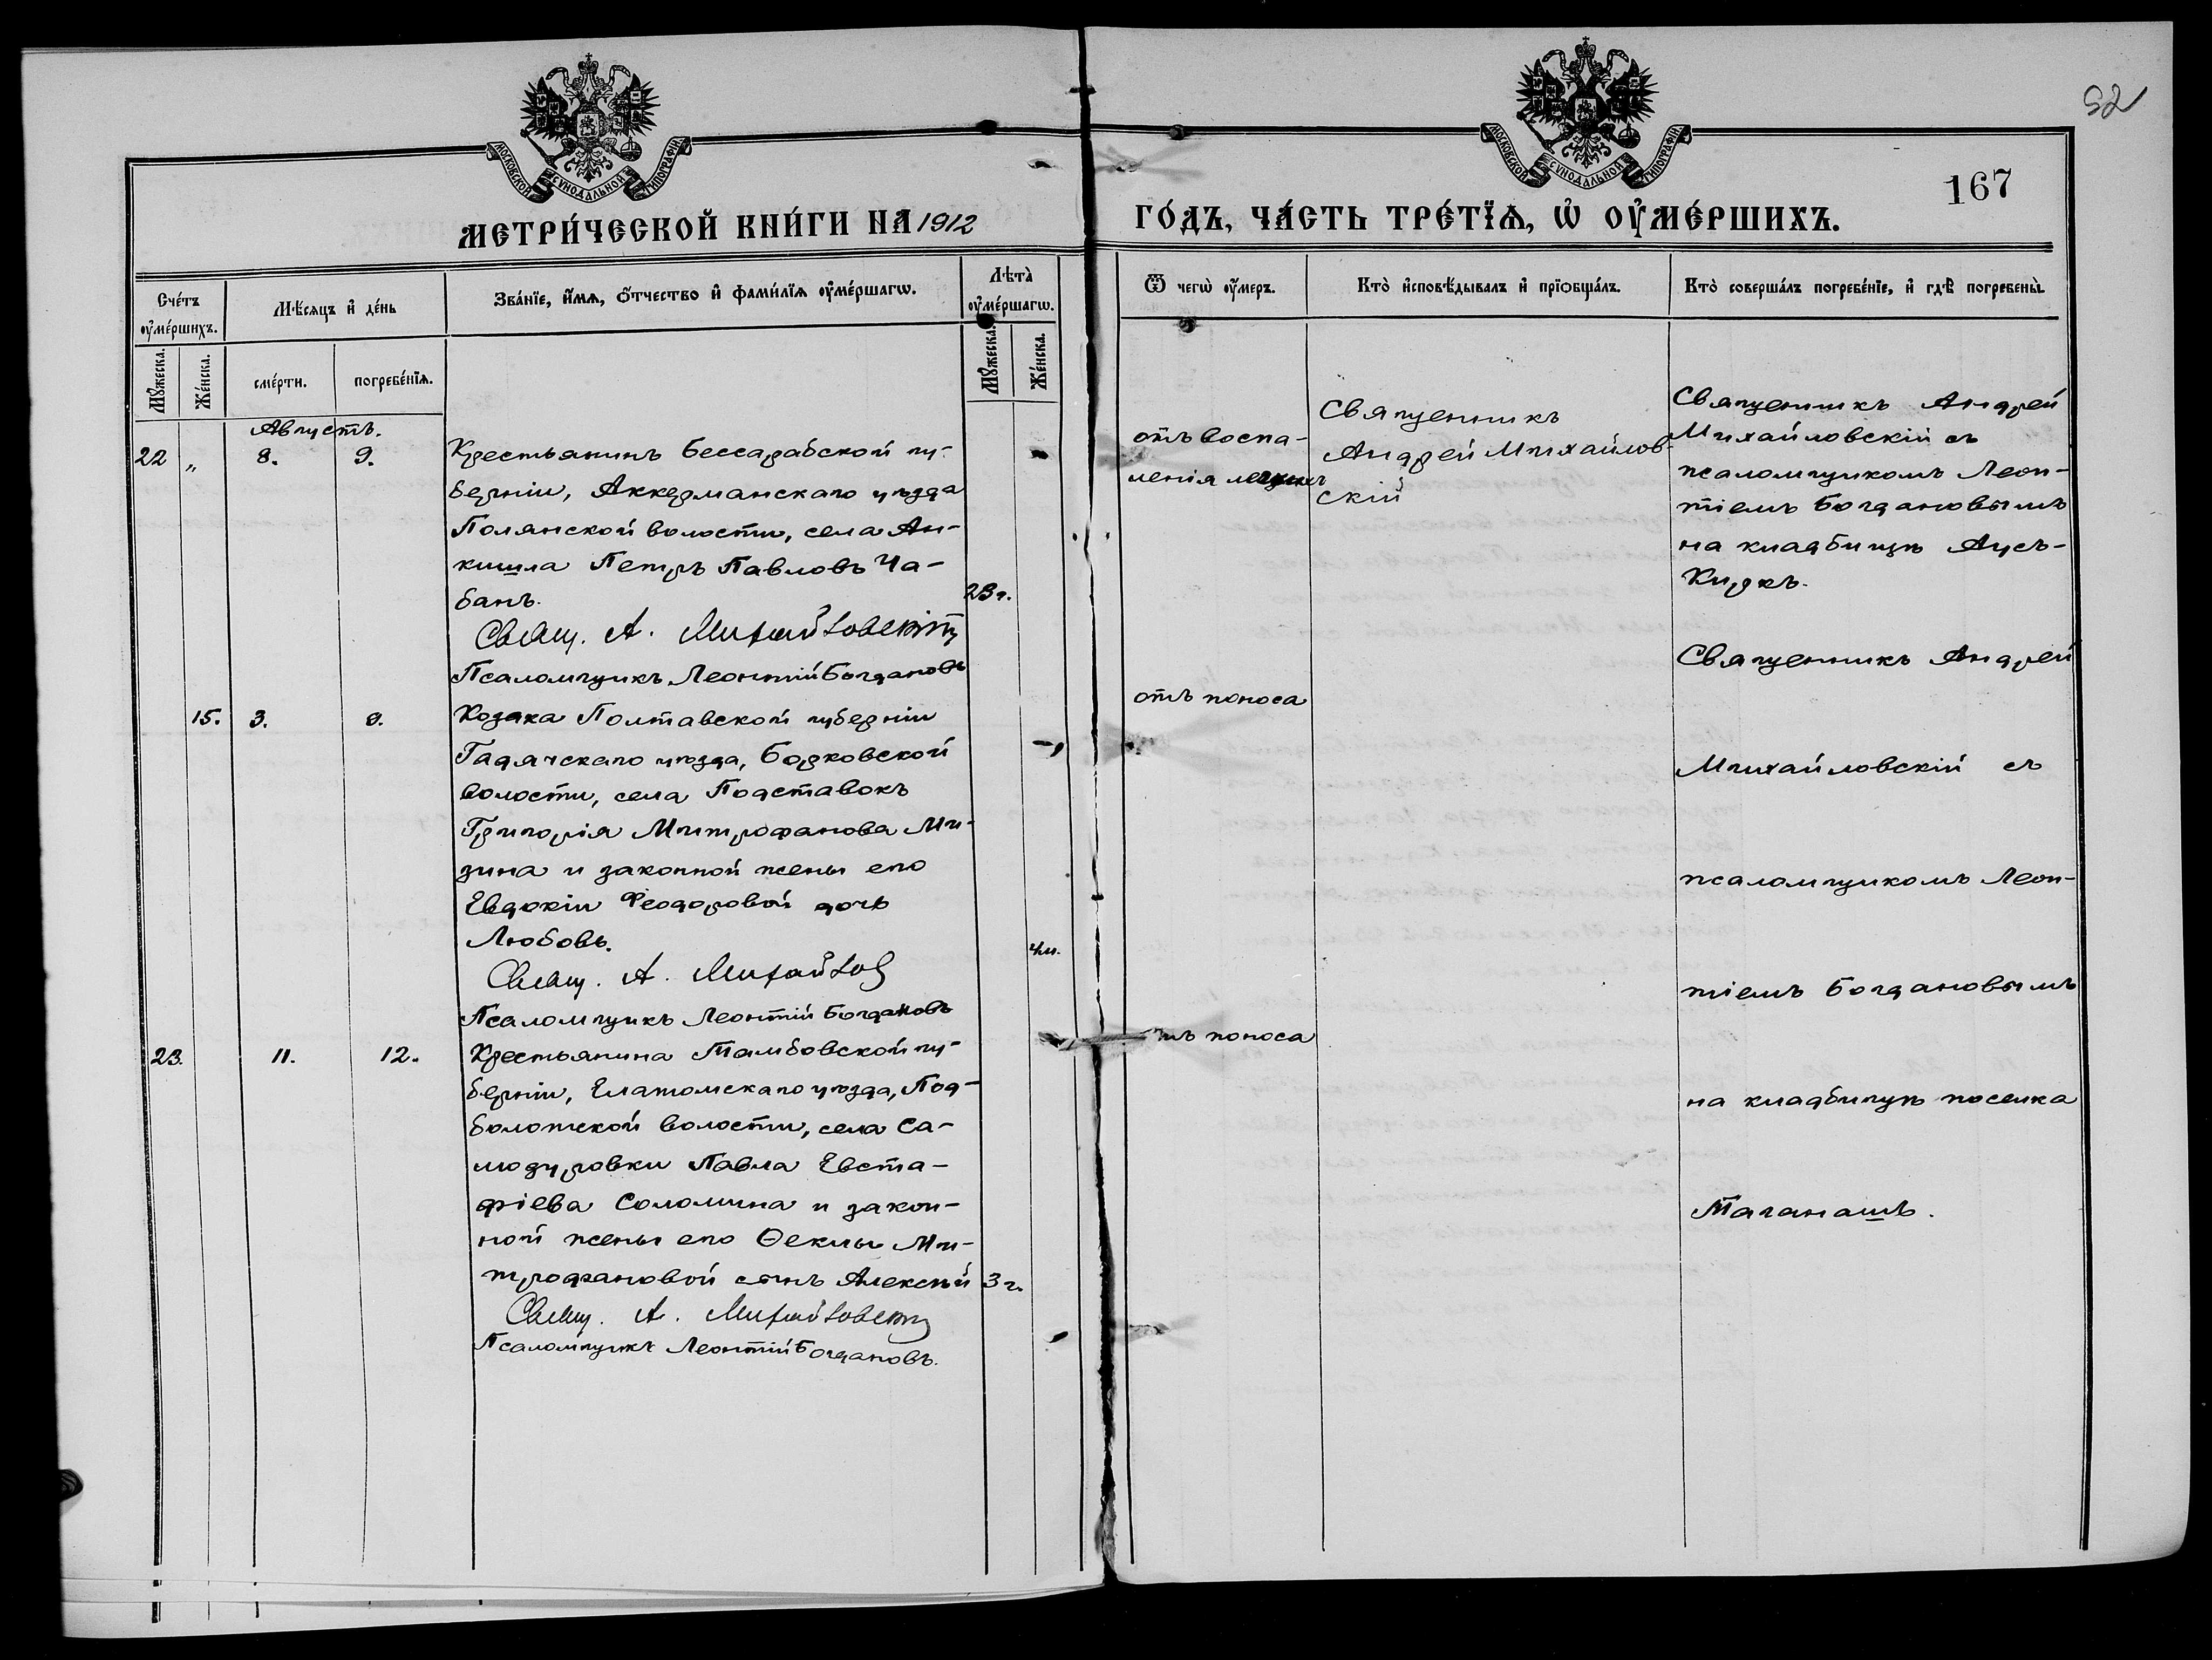 52
167
МОСКОВСКОЙ СУНОДАЛЬНОЙ ТИПОГРАФІИ
МОСКОВСКОЙ СУНОДАЛЬНОЙ ТИПОГРАФІИ
МЕТРИ́ЧЕСКОЙ КНИ́ГИ НА 1912
ГО́ДЪ, ЧА́СТЬ ТРЕ́ТЇѦ, Ѡ҆ ОУ҆МЕ́РШИХЪ.
Сче́тъ оу҆ме́ршихъ.
Мѣ́сяцъ и҆ де́нь
Зва́нїе, и҆́мя, ѻ҆́тчество и҆ фами́лїя оу҆ме́ршагѡ.
Лѣта̀ оу҆ме́ршагѡ.
Ѿ чегѡ̀ оу҆́меръ.
Кто̀ и҆сповѣ́дывалъ и҆ прїѻбща́лъ.
Кто̀ соверша́лъ погребе́нїе, и҆ гдѣ̀ погребены̀.
Мꙋ́жеска.
Же́нска.
сме́рти.
погребе́нїя.
Мꙋ́жеска.
Же́нска.
Августъ.
22 „ 8. 9.
Крестьянинъ Бессарабской гу-
берніи, Аккерманскаго уѣзда
Полянской волости, села Ан-
кишла Петръ Павловъ Ча-
банъ. 23 г.
Свящ. А. Михайловскій
Псаломщикъ Леонтій Богдановъ
отъ воспа-
ленія легкихъ
Священникъ
Андрей Михайлов-
скій
Священникъ Андрей
Михайловскій съ
псаломщикомъ Леон-
тіемъ Богдановымъ
на кладбищѣ Аусъ-
Киркъ.
15. 3. 9.
Козака Полтавской губерніи
Гадячскаго уѣзда, Борковской
волости, села Подставокъ
Григорія Митрофанова Ми-
зина и законной жены его
Евдокіи Феодоровой дочь
Любовь. 4 м.
Свящ. А. Михайлов
Псаломщикъ Леонтій Богдановъ
отъ поноса
Священникъ Андрей
Михайловскій съ
псаломщикомъ Леон-
тіемъ Богдановымъ
на кладбищѣ поселка
Таганашъ.
23. 11. 12.
Крестьянина Тамбовской гу-
берніи, Елатомскаго уѣзда, Под-
болотской волости, села Са-
модуровки Павла Евста-
фіева Соломина и закон-
ной жены его Ѳеклы Ми-
трофановой сынъ Алексѣй 3 г.
Свящ. А. Михайловскій
Псаломщикъ Леонтій Богдановъ.
отъ поноса